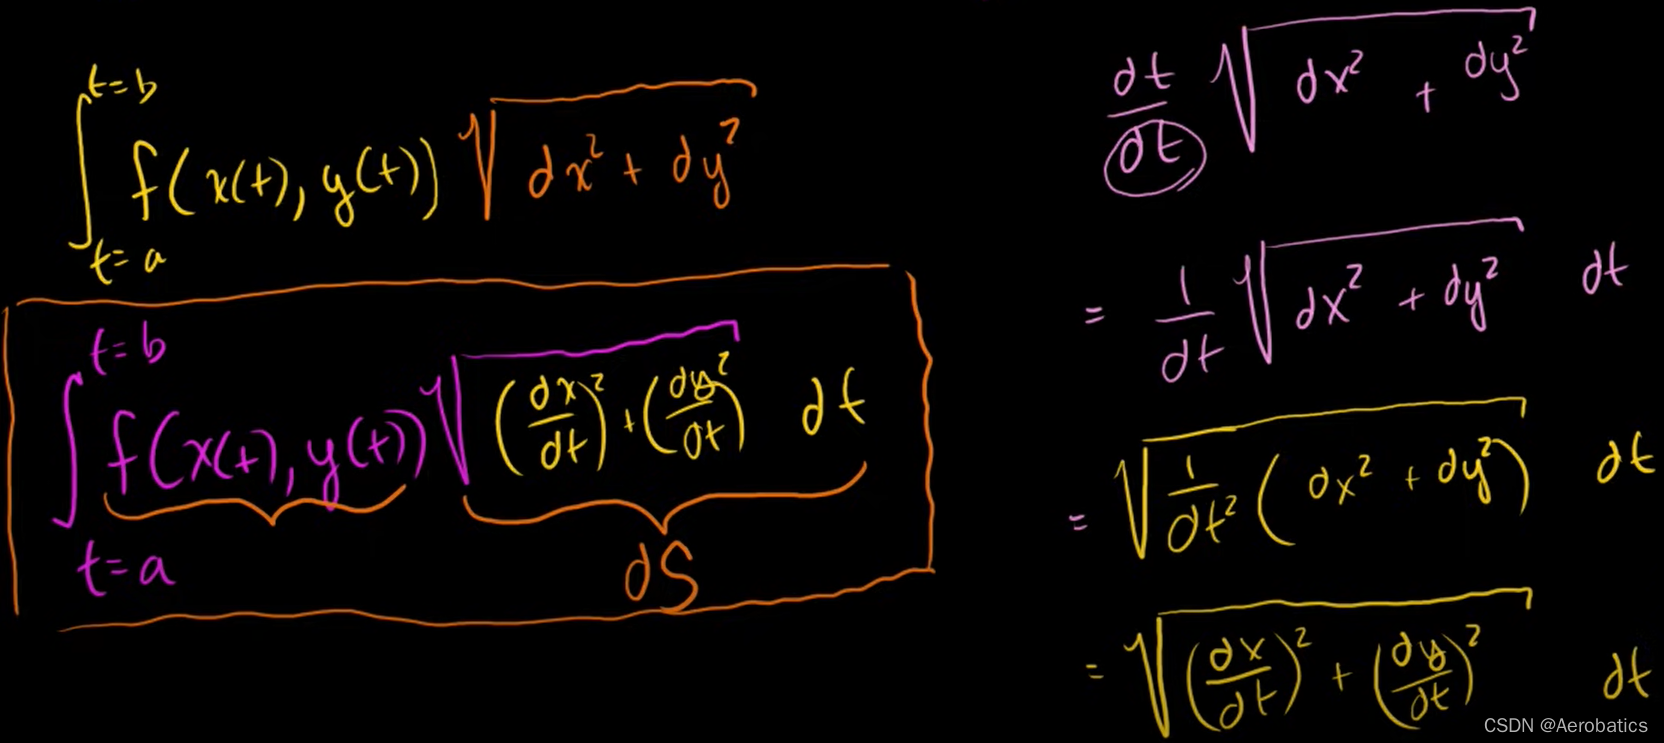 ∫_{t=a}^{t=b} f(x(t), y(t)) √(dx² + dy²)
∫_{t=a}^{t=b} f(x(t), y(t)) √((dx/dt)² + (dy/dt)²) dt
dS
dt/dt √(dx² + dy²)
= 1/dt √(dx² + dy²) dt
= √(1/dt² (dx² + dy²)) dt
= √((dx/dt)² + (dy/dt)²) dt
CSDN @Aerobatics